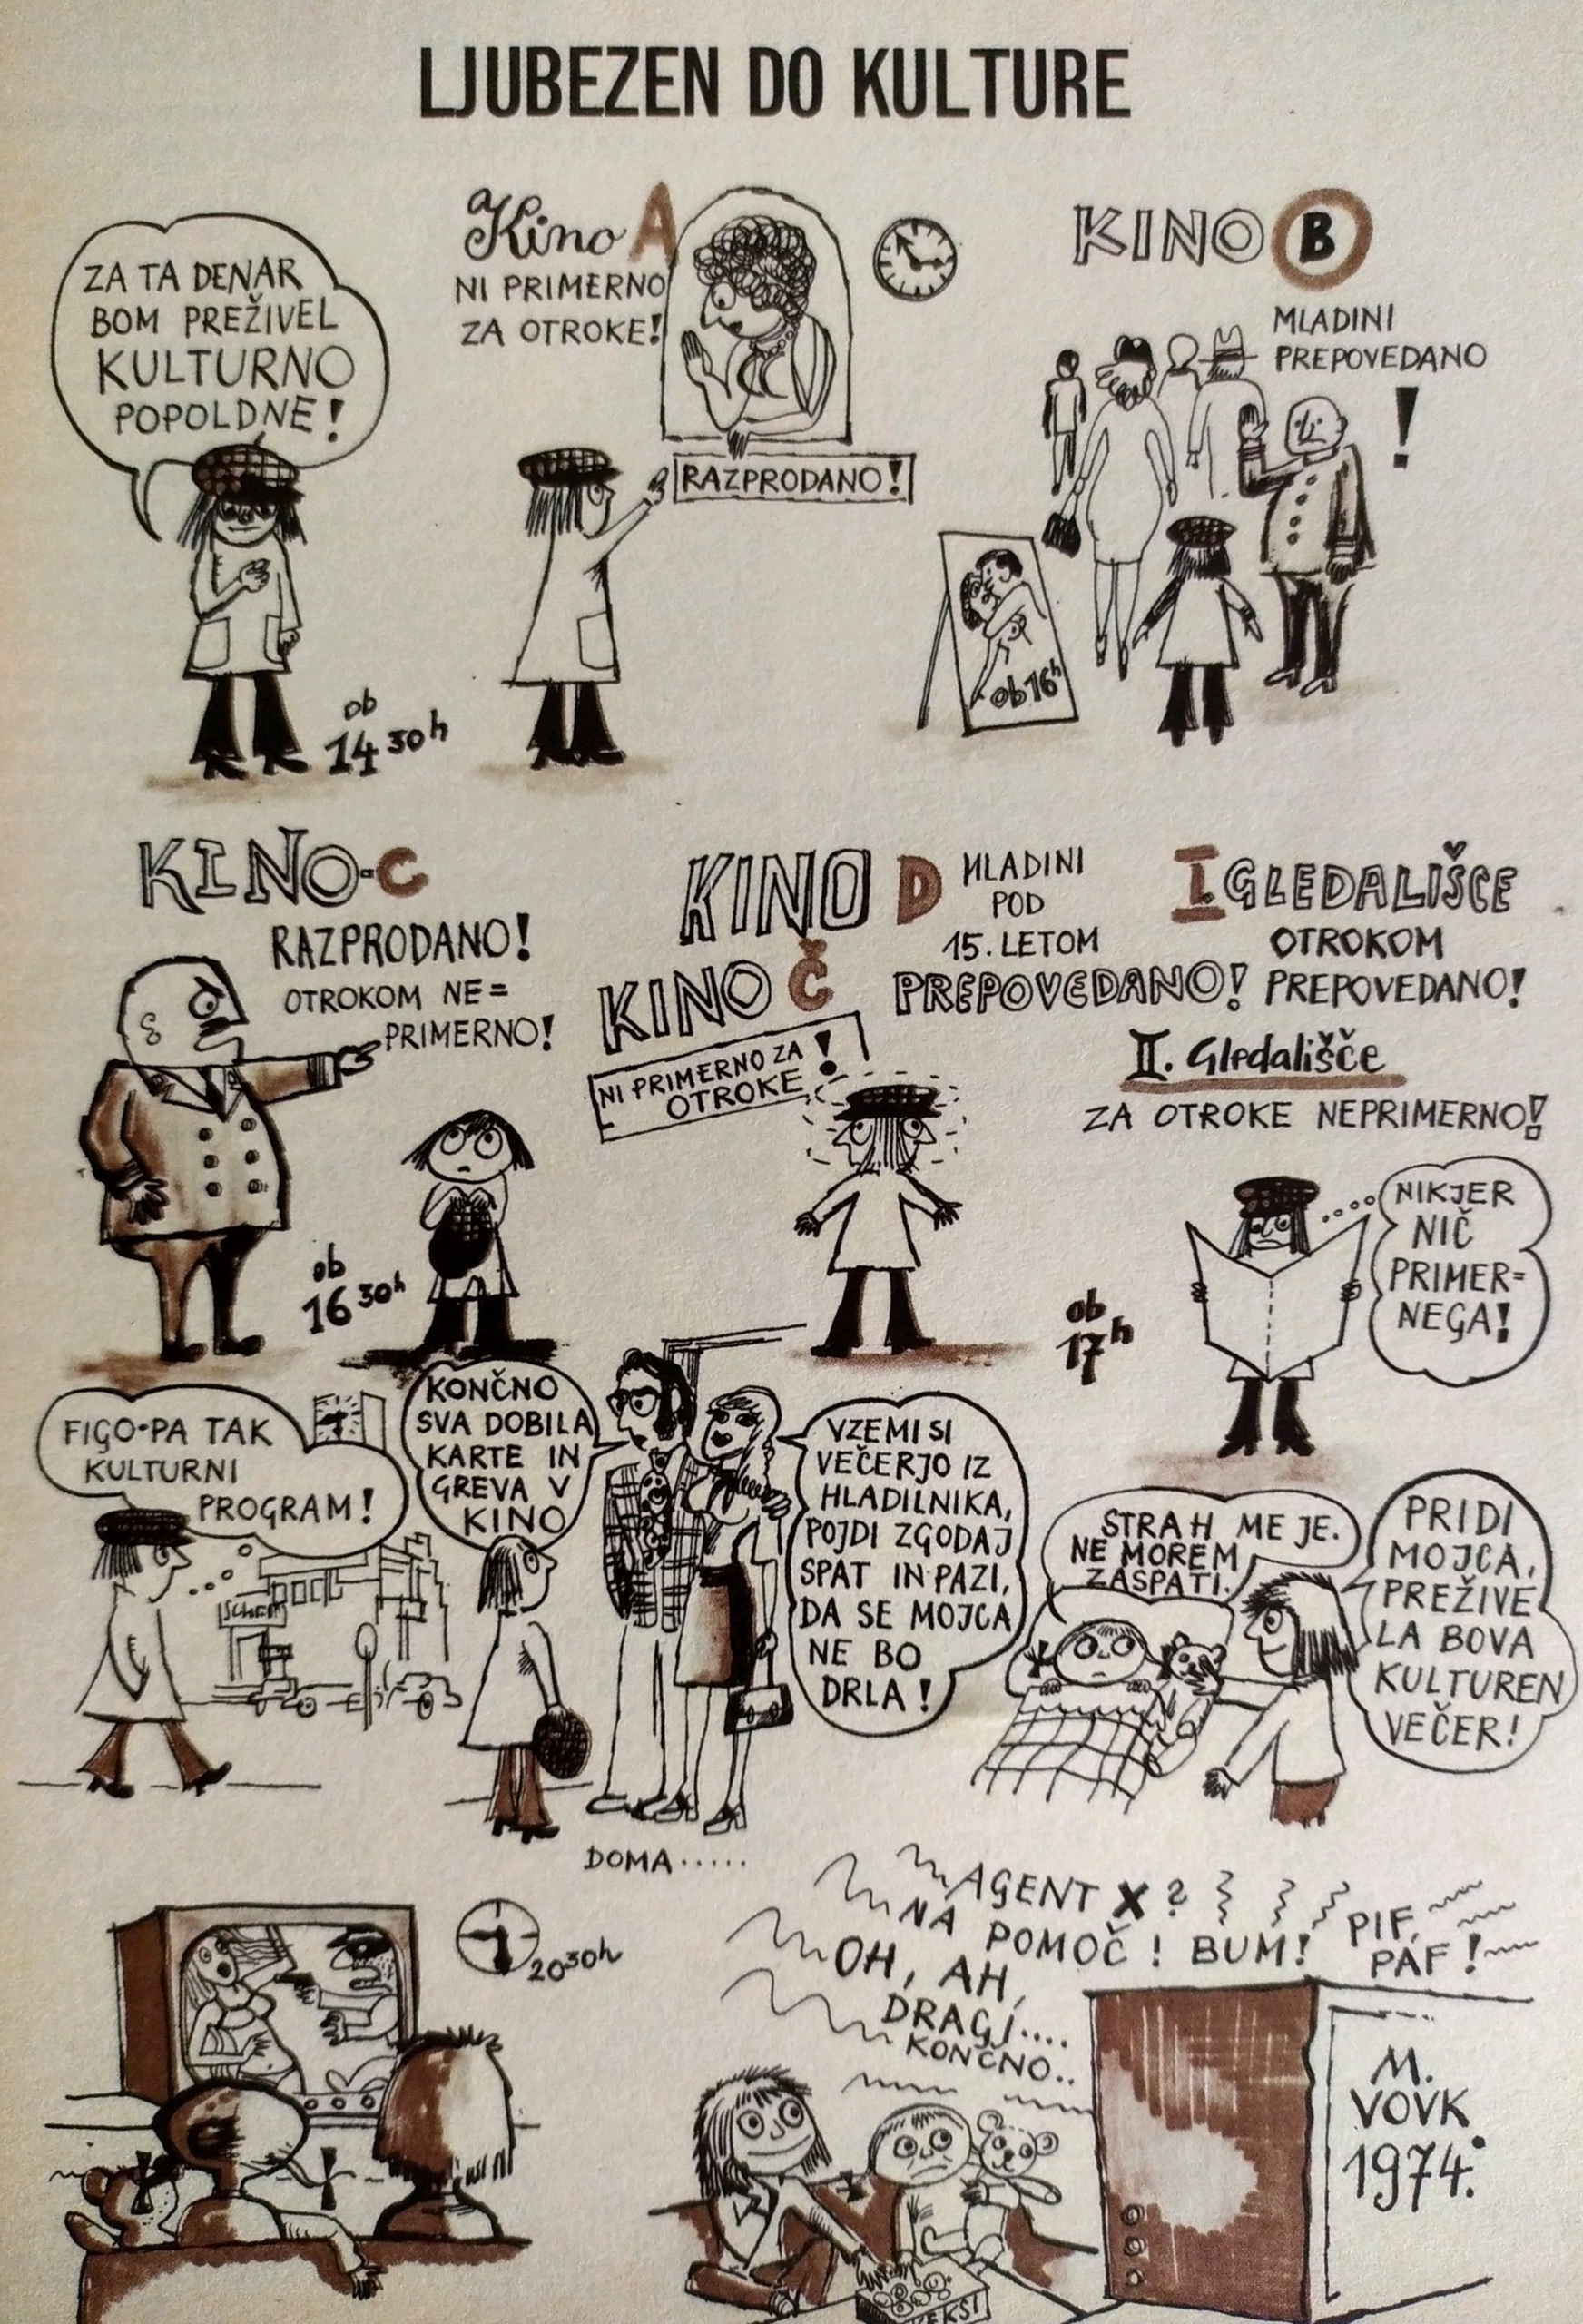 LJUBEZEN DO KULTURE
ZA TA DENAR
BOM PREŽIVEL
KULTURNO
POPOLDNE!
ob
14 30 h
Kino A
NI PRIMERNO
ZA OTROKE!
RAZPRODANO!
KINO B
MLADINI
PREPOVEDANO
!
ob 16h
KINO-C
RAZPRODANO!
OTROKOM NE=
PRIMERNO!
ob
16 30 h
KINO D
MLADINI
POD
15. LETOM
PREPOVEDANO!
KINO Č
NI PRIMERNO ZA
OTROKE!
I. GLEDALIŠČE
OTROKOM
PREPOVEDANO!
II. Gledališče
ZA OTROKE NEPRIMERNO!
ob
17h
NIKJER
NIČ
PRIMER=
NEGA!
FIGO-PA TAK
KULTURNI
PROGRAM!
KONČNO
SVA DOBILA
KARTE IN
GREVA V
KINO
VZEMI SI
VEČERJO IZ
HLADILNIKA,
POJDI ZGODAJ
SPAT IN PAZI,
DA SE MOJCA
NE BO
DRLA!
STRAH ME JE.
NE MOREM
ZASPATI.
PRIDI
MOJCA,
PREŽIVE
LA BOVA
KULTUREN
VEČER!
DOMA.....
20 30 h
AGENT X?
NA POMOČ! BUM!
PIF,
PAF!
OH, AH,
DRAGI....
KONČNO..
M.
VOVK
1974.
KEKSI